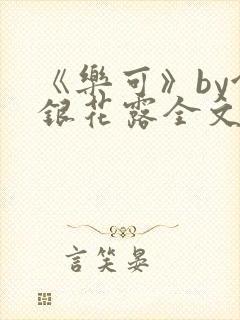 《樂可》by
銀花露全文
言笑晏